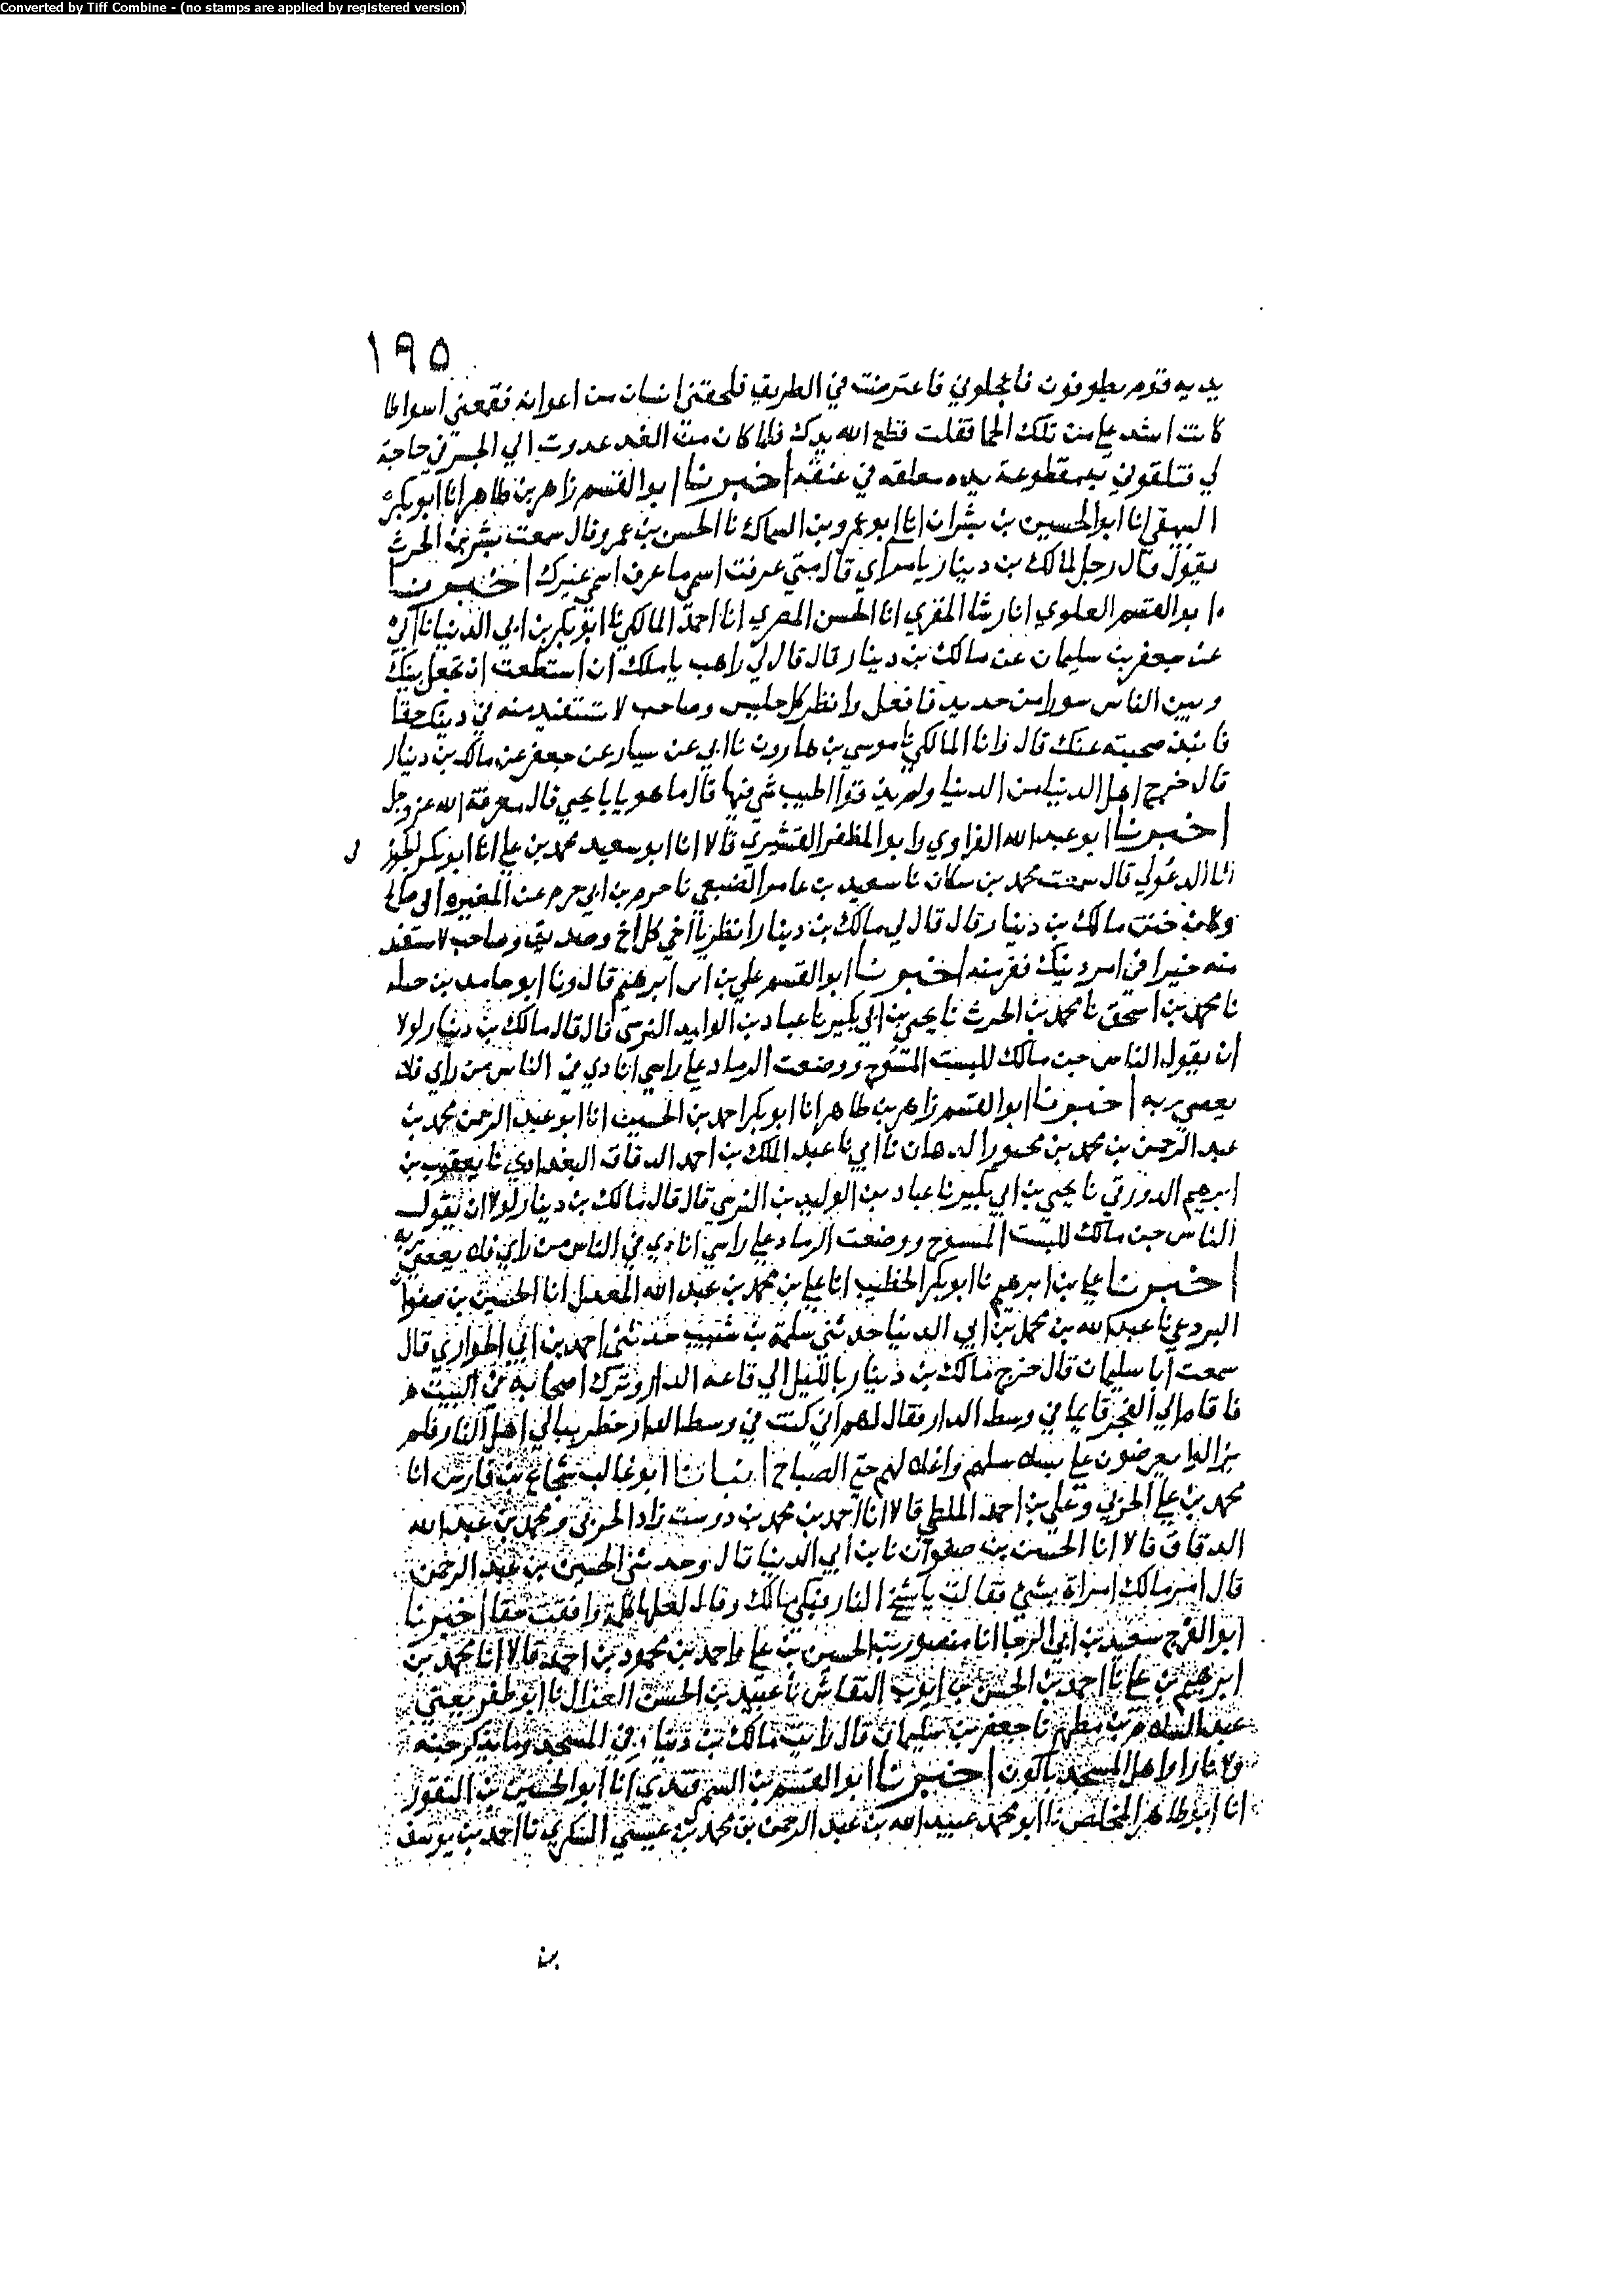 Converted by Tiff Combine - (no stamps are applied by registered version)
١٩٥
يديه قوم يطوفون فاعجلوني فاعترضت في الطريق فلحقني انسان من اعوانه فقمعني اسواطا
كانت اشد علي من تلك الحمي فقلت قطع الله يدك فلما كان من الغد غدوت الي الجسر في حاجة
لي فتلقوني به مقطوعة يده معلقه في عنقه اخبرنا ابو القسم زاهر بن طاهر انا ابو بكر
البيهقي انا ابو الحسين بن بشران انا ابو عمرو بن السماك نا الحسن بن عمرو قال سمعت بشر بن الحرث
يقول قال رجل لمالك بن دينار يا مراي قال متي عرفت اسمي ما عرف اسمي غيرك اخبرنا
ابو القسم العلوي انا رشا المقري انا الحسن المصري انا احمد المالكي نا ابو بكر بن ابي الدنيا نا ابي
عن جعفر بن سليمان عن مالك بن دينار قال قال لي راهب يا ملك ان استطعت ان تجعل بينك
وبين الناس سورا من حديد فافعل وانظر كل جليس وصاحب لا تستفيد منه في دينك حقا
فانبذ صحبته عنك قال وانا المالكي نا موسي بن هارون نا ابي عن سيار عن جعفر عن مالك بن دينار
قال خرج اهل الدنيا من الدنيا ولم يذوقوا اطيب شي فيها قال ما هو يا با يحيي قال معرفة الله عز وجل
اخبرنا ابو عبد الله الفراوي وابو المظفر القشيري قالا انا ابو سعيد محمد بن علي انا ابو بكر الجوز
انا الدغولي قال سمعت محمد بن سكان نا سعيد بن عامر الضبعي نا حزم بن ابي حزم عن المغيره ابي صالح
وكان ختن مالك بن دينار قال قال لي مالك بن دينار انظر يا اخي كل اخ وصديق وصاحب لا ستفند
منه خيرا في امر دينك ففر منه اخبرنا ابو القسم علي بن ابرهيم قال ونا ابو حامد بن
نا محمد بن اسحق نا محمد بن الحرث نا يحيي بن ابي بكير نا عباد بن الوليد القرشي قال قال مالك بن دينار لولا
ان يقول الناس جن مالك للبست المسوح ووضعت الرماد علي راسي انادي في الناس من رأي فلا
يعصي ربه اخبرنا ابو القسم زاهر بن طاهر انا ابو بكر احمد بن الحسين انا ابو عبد الرحمن محمد بن
عبد الرحمن بن محمد بن محبور الدهان نا ابي نا عبد الملك بن احمد الدقاق البغدادي نا يعقوب بن
ابرهيم الدورقي نا يحيي بن ابي بكير نا عباد بن الوليد بن القرشي قال قال مالك بن دينار لولا ان يقول
الناس جن مالك للبست المسوح ووضعت الرماد علي راسي انادي في الناس من رأي فلا يعصي ربه
اخبرنا علي بن ابرهيم نا ابو بكر الخطيب انا علي بن محمد بن عبد الله المعدل انا الحسين بن صفوا
البردعي نا عبد الله بن محمد بن ابي الدنيا حدثني سلمة بن شبيب حدثني احمد بن ابي الحواري قال
سمعت ابا سليمان قال خرج مالك بن دينار بالليل الي قاعه الدار وترك اصحابه في البيت
فاقام الي الفجر قايما في وسط الدار فقال لهم اني كنت في وسط الدار خطر ببالي اهل النار فلم
يزالوا يعرضون علي بسلاسلهم واغلالهم حتي الصباح انبانا ابو غالب شجاع بن فارس انا
محمد بن علي الحربي وعلي بن احمد الملطي قالا انا احمد بن محمد بن دوست زاد الحربي ومحمد بن عبد الله
الدقاق قالا انا الحسين بن صفوان نا بن ابي الدنيا قال وحدثني الحسين بن عبد الرحمن
قال امر مالك امراة بشئ فقالت يا شيخ النار فبكي مالك وقال لعلها كلمة وافقت حقا اخبرنا
ابو الفرج سعيد بن ابي الرجا انا منصور بن الحسين بن علي واحمد بن محمود بن احمد قالا انا محمد بن
ابرهيم بن علي نا احمد بن الحسن بن ايوب النقاش نا عبيد بن الحسن الغزال نا ابو ظفر يعني
عبد السلام بن مطهر نا جعفر بن سليمان قال رايت مالك بن دينار في المسجد وما يذكر جنه
ولا نارا واهل المسجد باكون اخبرنا ابو القسم بن السمرقندي انا ابو الحسين بن النقور
انا ابو طاهر المخلص نا ابو محمد عبيد الله بن عبد الرحمن بن محمد بن عيسي السكري نا احمد بن يوسف
بن